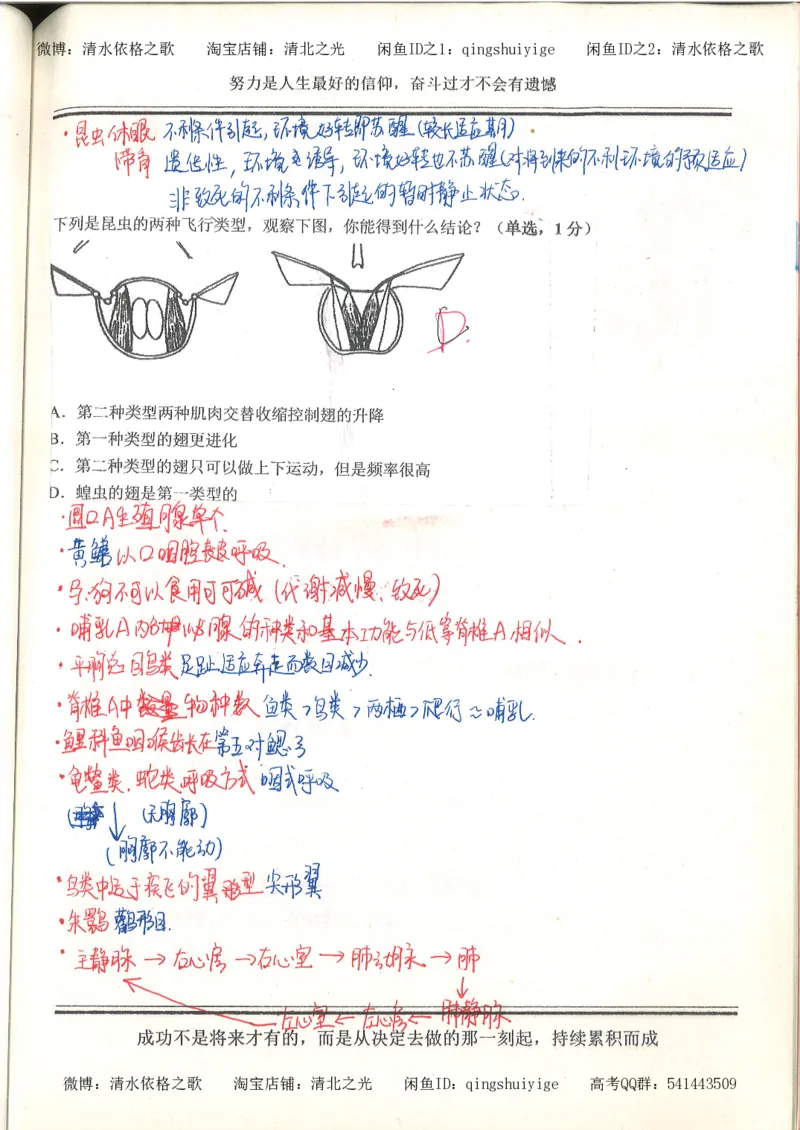 微博：清水依格之歌 淘宝店铺：清北之光 闲鱼ID之1：qingshuiyige 闲鱼ID之2：清水依格之歌
努力是人生最好的信仰，奋斗过才不会有遗憾
·昆虫休眠 不利条件引起，环境好转即苏醒（较长适应期）
滞育 遗传性，环境会诱导，环境好转也不苏醒（对将到来的不利环境的预适应）
非致死的不利条件下引起的暂时静止状态.
下列是昆虫的两种飞行类型，观察下图，你能得到什么结论？（单选，1分）
D.
A．第二种类型两种肌肉交替收缩控制翅的升降
B．第一种类型的翅更进化
C．第二种类型的翅只可以做上下运动，但是频率很高
D．蝗虫的翅是第一类型的
·圆口A生殖腺单个
·黄鳝以口咽腔表皮呼吸.
·马.狗不可以食用可可碱（代谢减慢、致死）
·哺乳A内分泌腺的种类和基本功能与低等脊椎A相似.
·平胸总目鸟类足趾适应奔走而数目减少.
·脊椎A中物种数 鱼类>鸟类>两栖>爬行≈哺乳.
·鲤科鱼咽喉齿长在第五对鳃弓
·龟鳖类.蛇类呼吸方式 咽式呼吸
↓（无胸廓）
（胸廓不能动）
·鸟类中适于疾飞的翼型 尖形翼
·朱鹮 鹳形目.
·主静脉→右心房→右心室→肺动脉→肺
↓
左心室←左心房←肺静脉
成功不是将来才有的，而是从决定去做的那一刻起，持续累积而成
微博：清水依格之歌 淘宝店铺：清北之光 闲鱼ID：qingshuiyige 高考QQ群：541443509